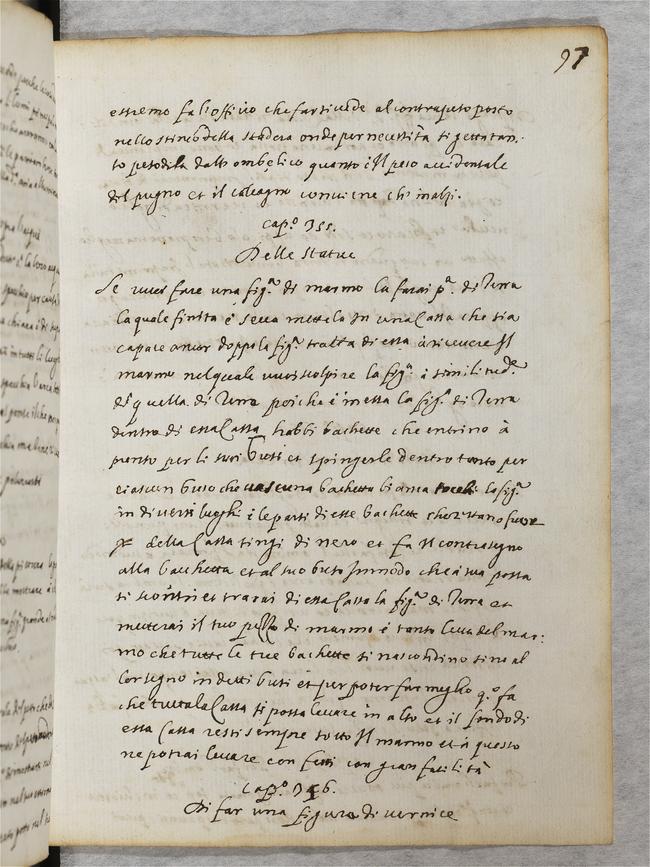 97
estremo fa l'offitio che far si vede al contraputo posto
nello stinco della stadera onde per necessità si getta tan-
to peso di la dall'ombelico quanto è Il peso accidentale
del pugno et il calcagno conviene ch' inalzi.
Cap.º 355.
Delle statue
Se vuoi fare una fig.ª di marmo la farai p.ª di Terra
la quale finita é secca mettela In una Cassa che sia
capace ancor doppo la fig.ª tratta di essa à ricevere Il
marmo nel quale vuoi scolpire la fig.ª à similitud.e
di quella di Terra poi che è messa la fig.ª di Terra
dentro di essa Cassa habbi bachette che entrino à
punto per li suoi Busi et spingerle dentro tanto per
ciascun buso che ciascuna bachetta bianca tocchi la fig.ª
in diversi luoghi è le parti di esse bachette che restano fuor
della Cassa tingi di nero et fa Il contrasegno
alla bacchetta et al suo buso In modo che à tua posta
si scontri et trarai di essa Cassa la fig.ª di Terra et
metterai il tuo pezzo di marmo é tanto leva del mar:
mo che tutte le tue bachette si nascondino sino al
lor segno in detti busi et per poter far meglio q.º fa
che tutta la Cassa si possa levare in alto et il fondo di
essa Cassa resti sempre sotto Il marmo et à questo
ne potrai levare con ferri con gran facilità
Cap.º 356.
Di far una figura di vernice